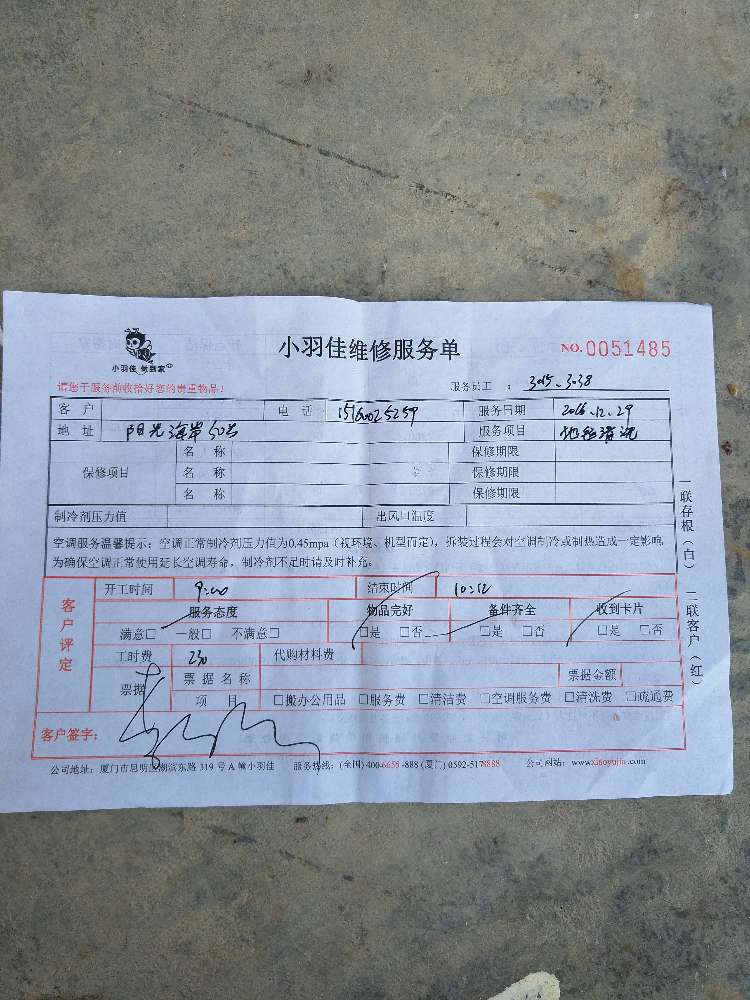 小羽佳 做到家
小羽佳维修服务单
NO.0051485
请您于服务前收拾好您的贵重物品!
服务员工 : 3015、3038
客户 电话 15160025259 服务日期 2016.12.29
地址 阳光海岸50号 服务项目 地毯清洗
保修项目
名称 保修期限
名称 保修期限
名称 保修期限
制冷剂压力值 出风口温度
空调服务温馨提示:空调正常制冷剂压力值为0.45mpa(视环境、机型而定),拆装过程会对空调制冷或制热造成一定影响
为确保空调正常使用延长空调寿命,制冷剂不足时请及时补充。
客户评定
开工时间 9:00 结束时间 10:12
服务态度 物品完好 备件齐全 收到卡片
满意□ 一般□ 不满意□ □是 □否 □是 □否 □是 □否
工时费 230 代购材料费
票据
票据名称 票据金额
项目 □搬办公用品 □服务费 □清洁费 □空调服务费 □清洗费 □疏通费
客户签字:
公司地址:厦门市思明区湖滨东路 319 号 A 幢小羽佳 服务热线:(全国)400-6655-888 (厦门) 0592-5178888 公司网站:www.xiaoyujia.com
一联存根(白) 二联客户(红)